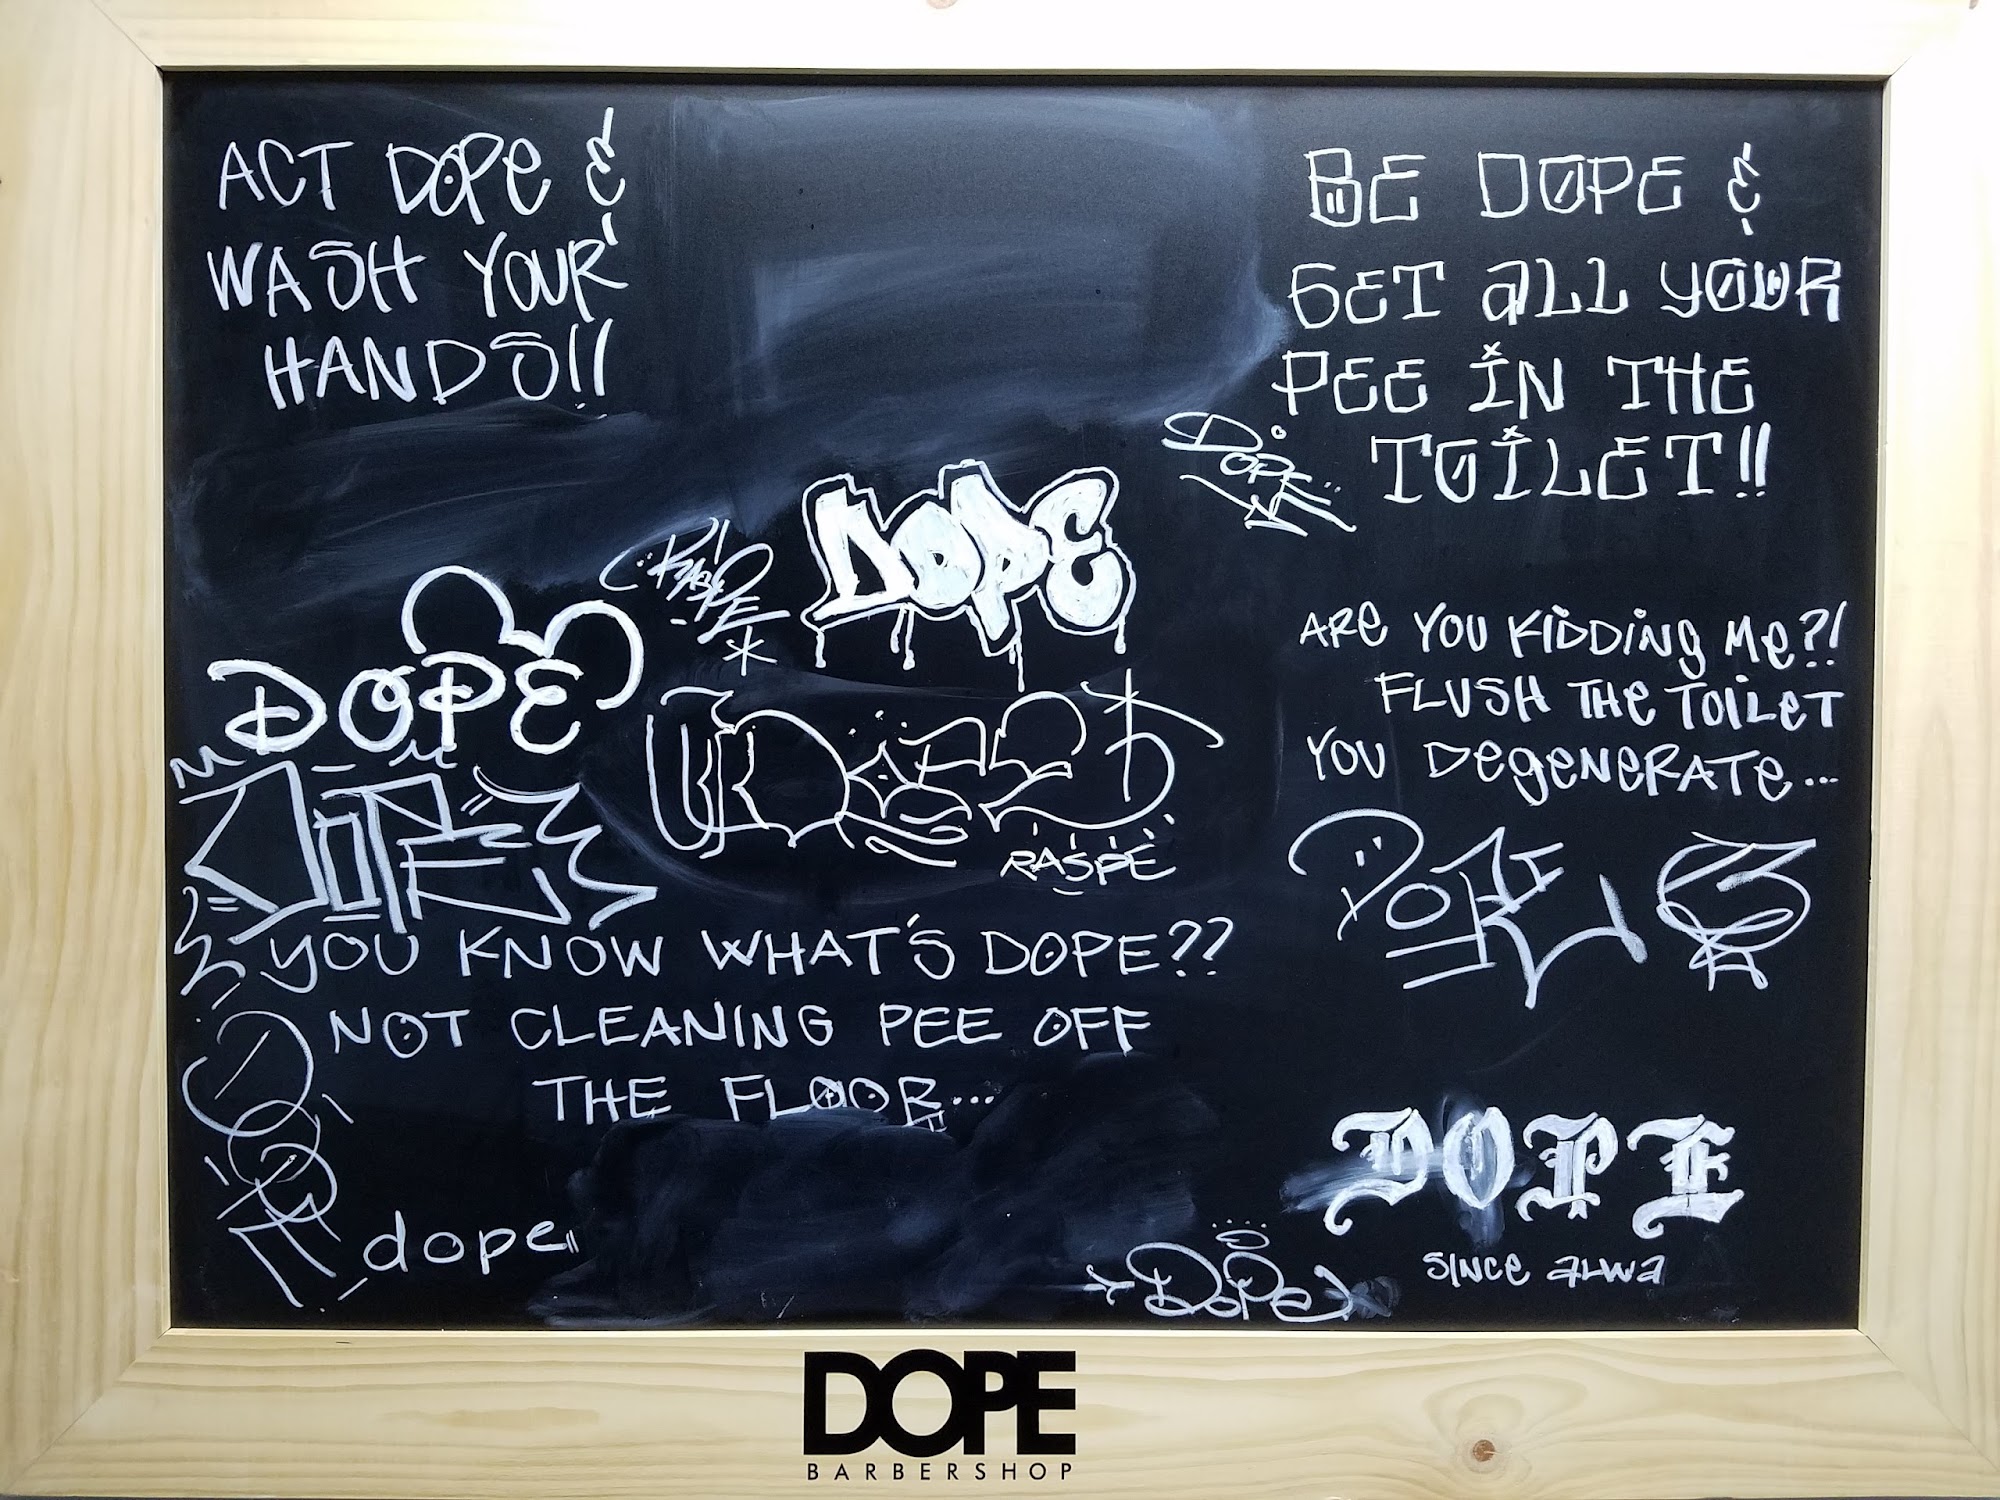 ACT DOPE &
WASH YOUR
HANDS!!
BE DOPE &
GET ALL YOUR
PEE IN THE
TOILET!!
DOPE
DOPE
RASPE
ARE YOU KIDDING ME?!
FLUSH THE TOILET
YOU DEGENERATE...
DOPE
DOPE
RASPE
DOPE
YOU KNOW WHAT'S DOPE??
NOT CLEANING PEE OFF
THE FLOOR...
DOPE
dope
DOPE
SINCE ALWA
DOPE
DOPE
BARBERSHOP